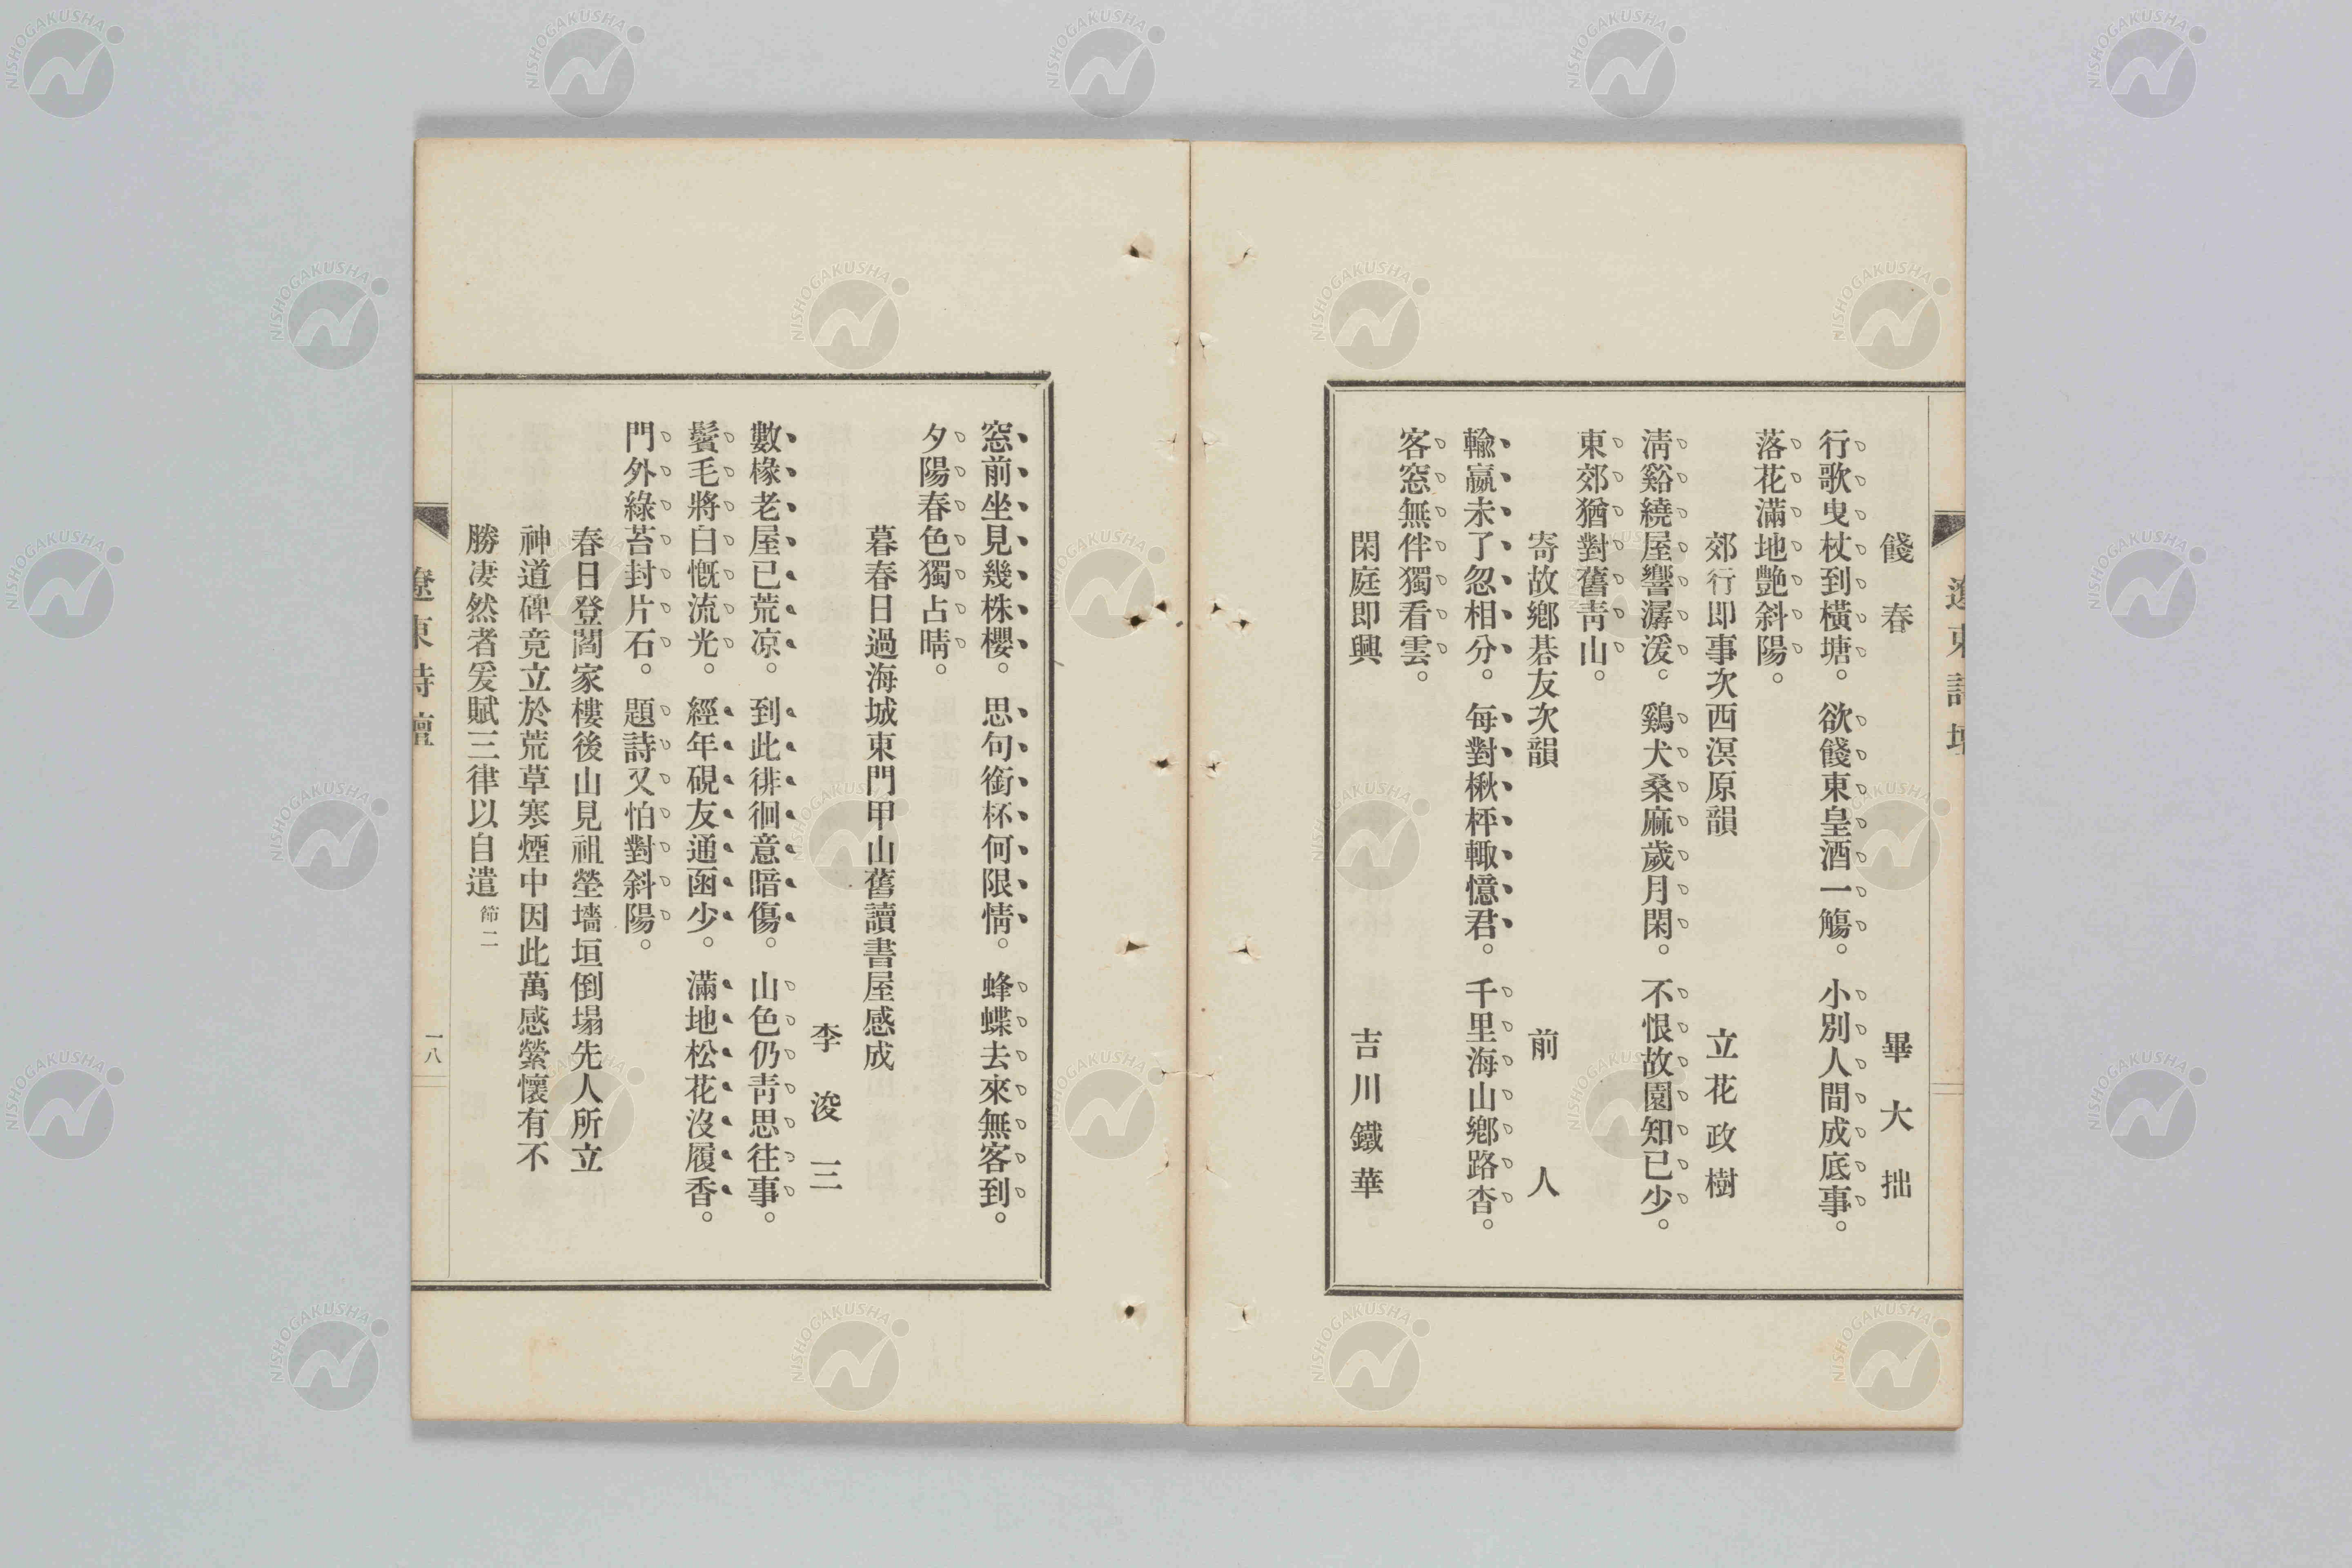 遼東詩壇
餞春　畢大拙
行歌曳杖到橫塘。欲餞東皇酒一觴。小別人間成底事。
落花滿地艷斜陽。
郊行即事次西溟原韻　立花政樹
淸谿繞屋響潺湲。鷄犬桑麻歲月閑。不恨故園知已少。
東郊猶對舊靑山。
寄故鄕碁友次韻　前人
輸嬴未了忽相分。每對楸枰輙憶君。千里海山鄕路杳。
客窓無伴獨看雲。
閑庭即興　吉川鐵華
窓前坐見幾株櫻。思句銜杯何限情。蜂蝶去來無客到。
夕陽春色獨占晴。
暮春日過海城東門甲山舊讀書屋感成
李浚三
數椽老屋已荒凉。到此徘徊意暗傷。山色仍靑思往事。
鬢毛將白慨流光。經年硯友通函少。滿地松花沒履香。
門外綠苔封片石。題詩又怕對斜陽。
春日登閻家樓後山見祖塋墻垣倒塌先人所立
神道碑竟立於荒草寒煙中因此萬感縈懷有不
勝凄然者爰賦三律以自遣 節二
遼東詩壇　一八
NISHOGAKUSHA